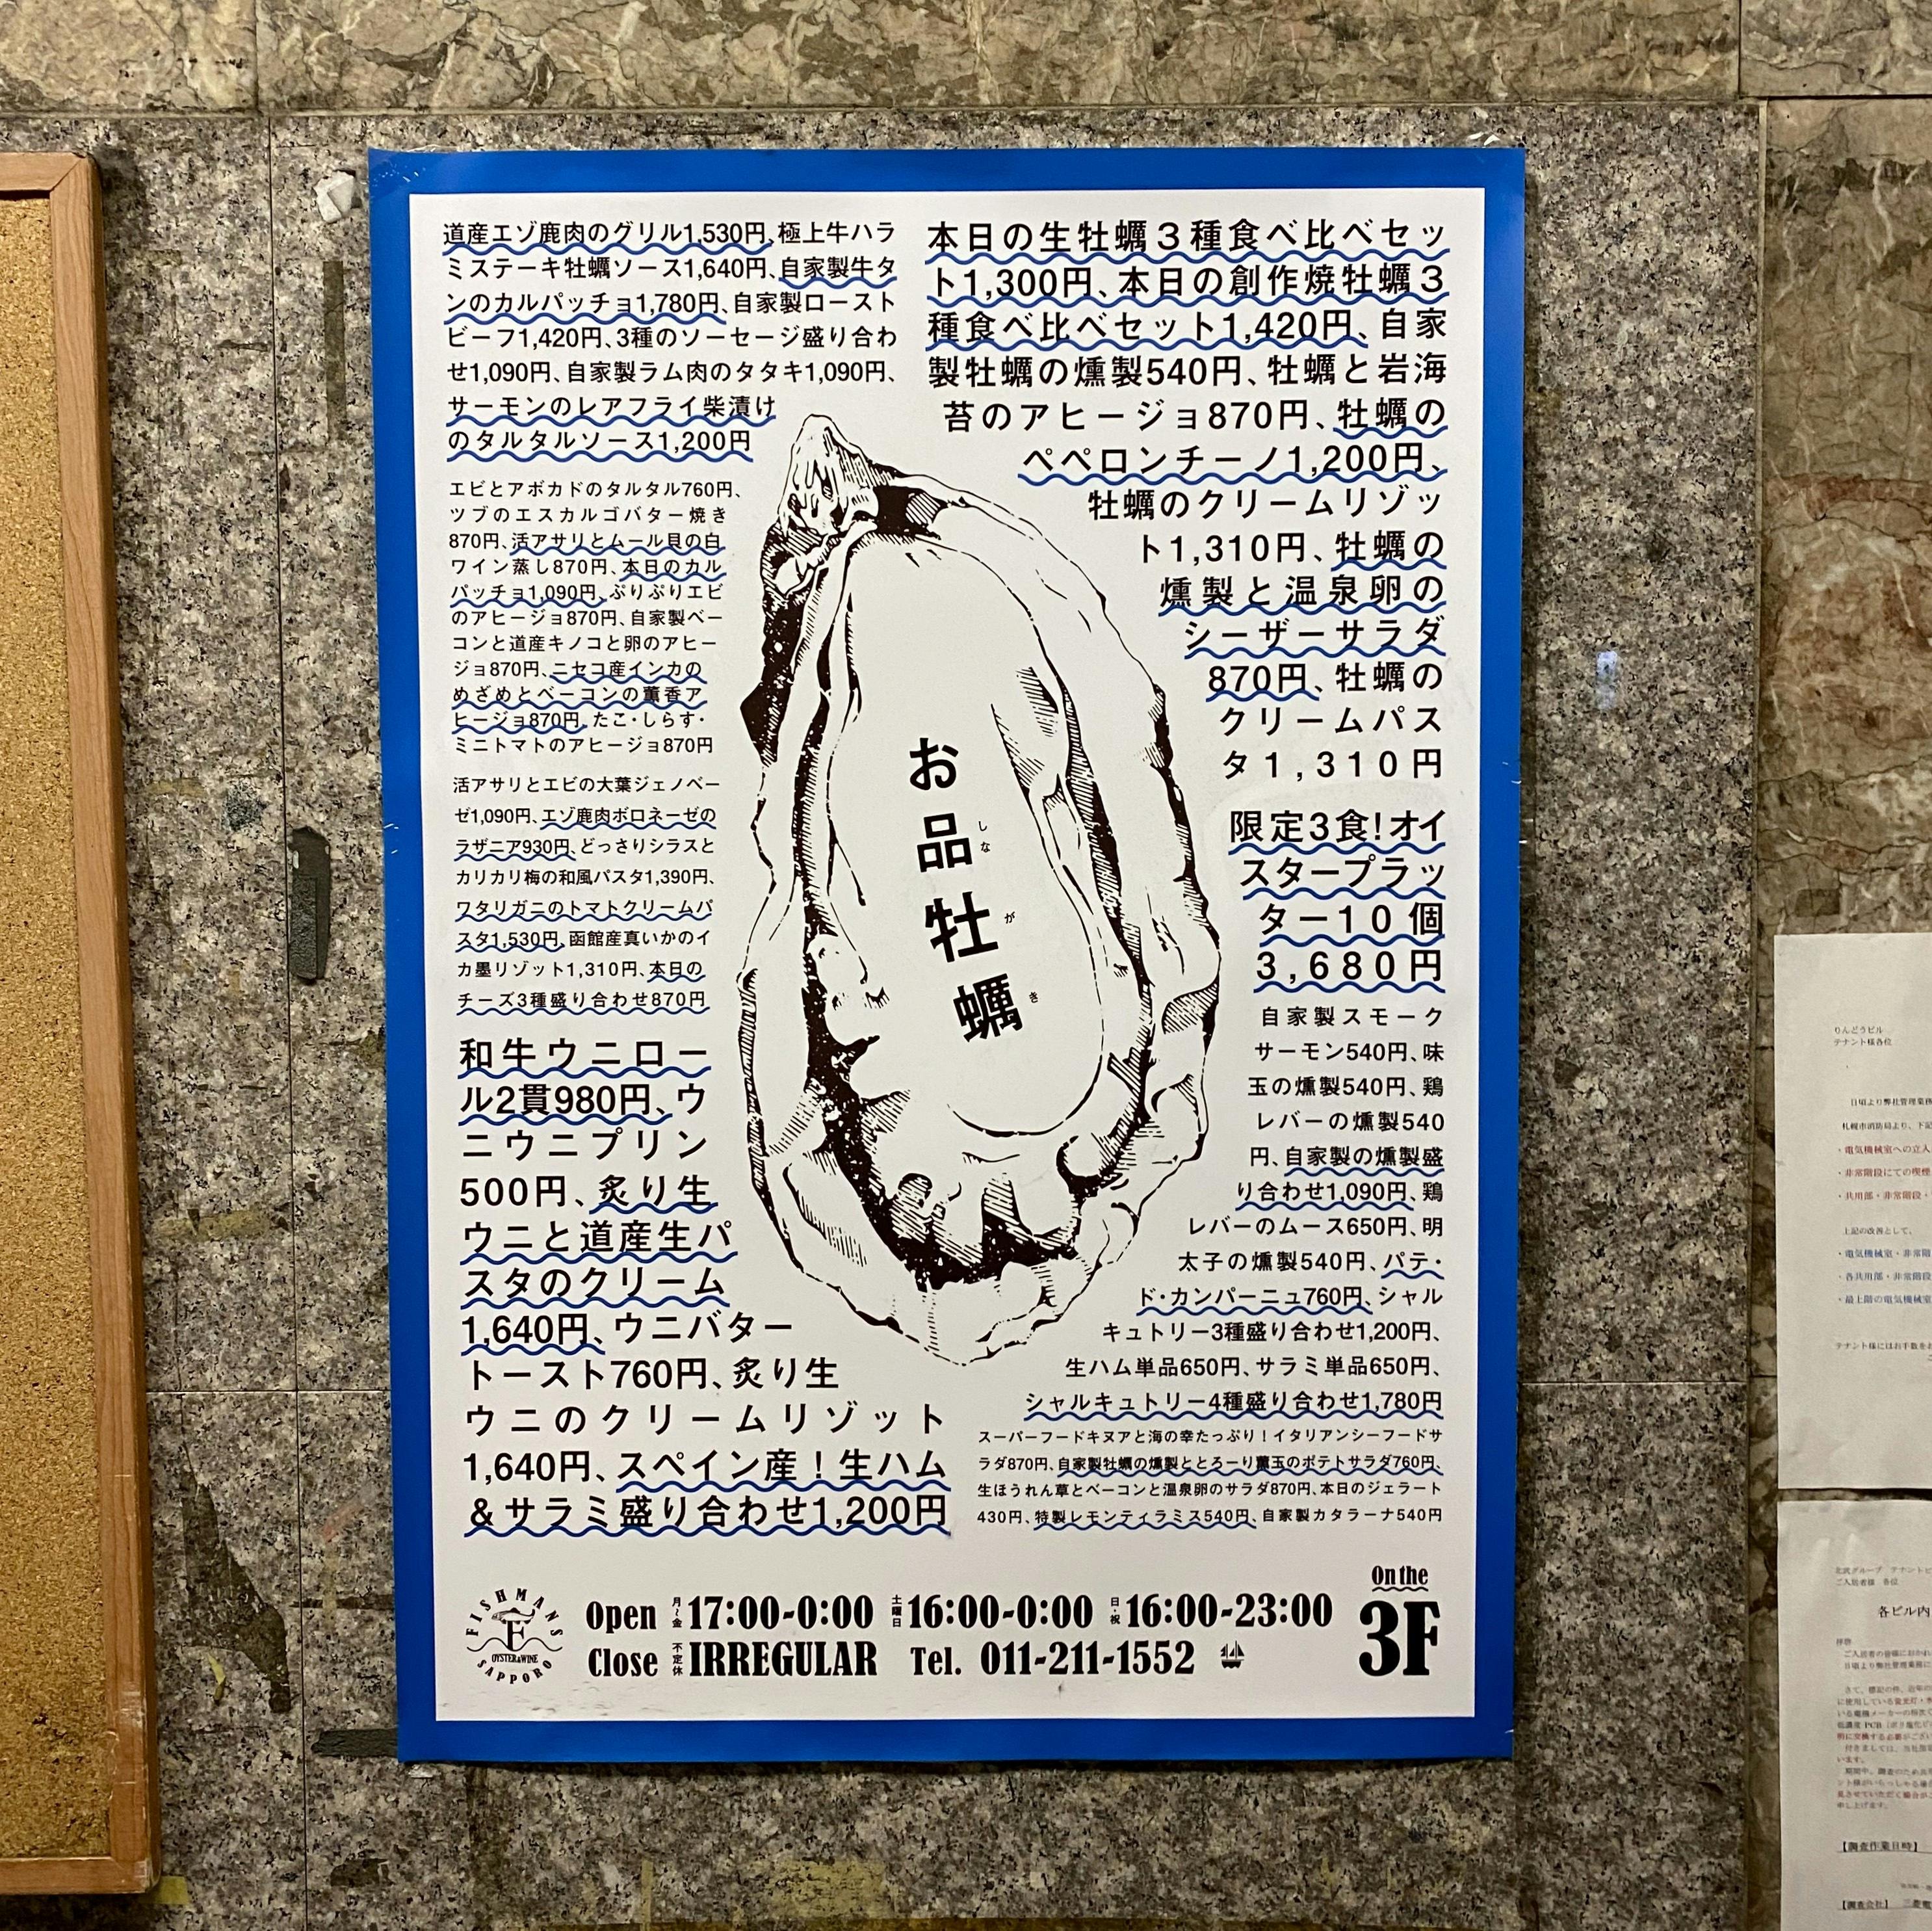 道産エゾ鹿肉のグリル1,530円、極上牛ハラ
ミステーキ牡蠣ソース1,640円、自家製牛タ
ンのカルパッチョ1,780円、自家製ロースト
ビーフ1,420円、3種のソーセージ盛り合わ
せ1,090円、自家製ラム肉のタタキ1,090円、
サーモンのレアフライ柴漬け
のタルタルソース1,200円
エビとアボカドのタルタル760円、
ツブのエスカルゴバター焼き
870円、活アサリとムール貝の白
ワイン蒸し870円、本日のカル
パッチョ1,090円、ぷりぷりエビ
のアヒージョ870円、自家製ベー
コンと道産キノコと卵のアヒー
ジョ870円、ニセコ産インカの
めざめとベーコンの薫香ア
ヒージョ870円、たこ・しらす・
ミニトマトのアヒージョ870円
活アサリとエビの大葉ジェノベー
ゼ1,090円、エゾ鹿肉ボロネーゼの
ラザニア930円、どっさりシラスと
カリカリ梅の和風パスタ1,390円、
ワタリガニのトマトクリームパ
スタ1,530円、函館産真いかのイ
カ墨リゾット1,310円、本日の
チーズ3種盛り合わせ870円
和牛ウニロー
ル2貫980円、ウ
ニウニプリン
500円、炙り生
ウニと道産生パ
スタのクリーム
1,640円、ウニバター
トースト760円、炙り生
ウニのクリームリゾット
1,640円、スペイン産！生ハム
&サラミ盛り合わせ1,200円
お品牡蠣
しながき
本日の生牡蠣3種食べ比べセッ
ト1,300円、本日の創作焼牡蠣3
種食べ比べセット1,420円、自家
製牡蠣の燻製540円、牡蠣と岩海
苔のアヒージョ870円、牡蠣の
ペペロンチーノ1,200円、
牡蠣のクリームリゾッ
ト1,310円、牡蠣の
燻製と温泉卵の
シーザーサラダ
870円、牡蠣の
クリームパス
タ1,310円
限定3食!オイ
スタープラッ
ター10個
3,680円
自家製スモーク
サーモン540円、味
玉の燻製540円、鶏
レバーの燻製540
円、自家製の燻製盛
り合わせ1,090円、鶏
レバーのムース650円、明
太子の燻製540円、パテ・
ド・カンパーニュ760円、シャル
キュトリー3種盛り合わせ1,200円、
生ハム単品650円、サラミ単品650円、
シャルキュトリー4種盛り合わせ1,780円
スーパーフードキヌアと海の幸たっぷり！イタリアンシーフードサ
ラダ870円、自家製牡蠣の燻製ととろーり薫玉のポテトサラダ760円、
生ほうれん草とベーコンと温泉卵のサラダ870円、本日のジェラート
430円、特製レモンティラミス540円、自家製カタラーナ540円
FISHMANS
F
OYSTER&WINE
SAPPORO
Open 月～金 17:00-0:00 土曜日 16:00-0:00 日・祝 16:00-23:00
Close 不定休 IRREGULAR Tel. 011-211-1552
On the
3F
りんどうビル
テナント様各位
日頃より弊社管理業務
札幌市消防局より、下記
・電気機械室への立入
・非常階段にての喫煙
・共用部・非常階段・
上記の改善として、
・電気機械室・非常階
・各共用部・非常階段
・最上階の電気機械室
テナント様にはお手数をお
北武グループ テナントビ
ご入居者様 各位
各ビル内
拝啓
ご入居者の皆様におかれ
日頃より弊社管理業務に
【調査作業日時】
【調査会社】